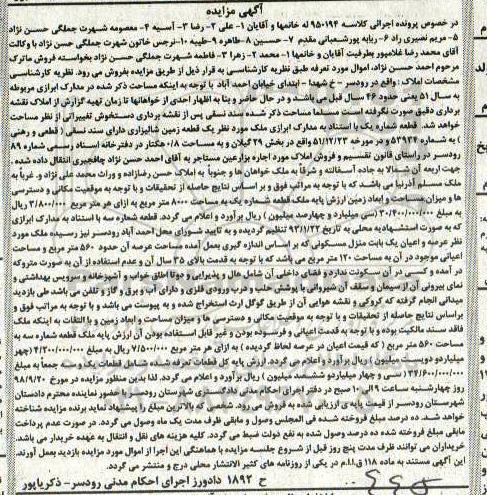 آگهی مزایده
در خصوص پرونده اجرائی کلاسه ۹۵۰۱۹۴ له خانمها و آقایان ۱- علی ۲- رضا ۳- آسیه ۴- معصومه شهرت جملگی حسن نژاد
۵- مریم نصیری راد ۶- ربابه پورشعبانی مقدم ۷- حسین ۸- طاهره ۹- طیبه ۱۰- نرجس خاتون شهرت جملگی حسن نژاد با وکالت
آقای محمد رضا غلامپور بطرفیت آقایان و خانمها ۱- محمد ۲- زهرا ۳- فاطمه شهرت جملگی حسن نژاد بخواسته فروش ماترک
مرحوم احمد حسن نژاد، اموال مورد تعرفه طبق نظریه کارشناسی به قرار ذیل از طریق مزایده بفروش می رود. نظریه کارشناسی
مشخصات املاک: واقع در رودسر - خ شهدا - ابتدای خیابان احمد آباد با توجه به اینکه مساحت ذکر شده در مدارک ابرازی مربوطه
به سال ۵۱ یعنی حدود ۴۶ سال قبل می باشد و در حال حاضر و بنا به اظهار احدی از خواهانها تا زمان تهیه گزارش از املاک نقشه
برداری دقیق صورت نگرفته است مسلما مساحت ذکر شده سند نسقی پس از نقشه برداری دستخوش تغییراتی از نظر مساحت
خواهد شد. قطعه شماره یک با استناد به مدارک ابرازی ملک مورد نظر یک قطعه زمین شالیزاری دارای سند نسقی (قطعی و رهنی
) به شماره ۵۳۹۲۴ و در مورخه ۵۱/۱۲/۲۳ واقع در بخش ۲۹ گیلان و به مساحت ۰/۸ هکتار در دفترخانه اسناد رسمی شماره ۸۹
رودسر در راستای قانون تقسیم و فروش املاک مورد اجاره بزارعین مستاجر به آقای احمد حسن نژاد چافجیری انتقال داده شده.
جهت اربعه آن شمالا به جاده آسفالته و شرقاً به ملک خواهان ها و جنوباً به املاک حسن رضازاده و وراث محمد علی نژاد و، غرباً به
ملک مسلم آذرنیا می باشد که با توجه به مراتب فوق و بر اساس نتایج حاصله از تحقیقات و با توجه به موقعیت مکانی و دسترسی
ها و میزان مساحت و ابعاد زمین ارزش پایه ملک قطعه شماره یک به مساحت ۸۰۰۰ متر مربع به ازای هر متر مربع ۳/۸۰۰/۰۰۰ ریال
به مبلغ ۳۰/۴۰۰/۰۰۰/۰۰۰ (سی میلیارد و چهارصد میلیون) ریال برآورد و اعلام می گردد. قطعه شماره سه با استناد به مدارک ابرازی
که به صورت استشهادیه محلی به تاریخ ۹۳/۱/۲۲ تنظیم گردیده و به تایید شورای محل احمد آباد رودسر نیز رسیده ملک مورد
نظر عرصه و اعیان یک بابت منزل مسکونی که بر اساس اندازه گیری بعمل آمده مساحت عرصه آن حدود ۵۶۰ متر مربع و مساحت
اعیانی موجود در آن به مساحت ۱۲۰ متر مربع می باشد که با توجه به قدمت بالای ۳۵ سال آن و عدم استفاده از آن به صورت متروکه
در آمده و کسی در آن سکونت ندارد و فضای داخلی آن شامل هال و پذیرایی و دوتا اطاق خواب و آشپزخانه و سرویس بهداشتی و
نمای بیرونی آن از سیمان و سقف آن شیروانی با پوشش حلب و درب ورودی فلزی و دارای آب و برق و گاز و تلفن می باشد طی بازدید
میدانی انجام گرفته که کروکی و نقشه هوایی آن از طریق گوگل ارت استخراج شده و به پیوست می باشد و با توجه به مراتب فوق و
براساس نتایج حاصله از تحقیقات و با توجه به موقعیت مکانی و دسترسی ها و میزان مساحت و ابعاد زمین و با التفات به اینکه ملک
فاقد سند مالکیت بوده و با توجه به قدمت اعیانی و فرسوده بودن و غیر قابل استفاده بودن آن ارزش پایه ملک قطعه شماره سه به
مساحت ۵۶۰ متر مربع (که قیمت اعیان در عرصه لحاظ گردیده) به ازای هر متر مربع ۷/۵۰۰/۰۰۰ ریال به مبلغ ۴/۲۰۰/۰۰۰/۰۰۰ (چهار
میلیاردو دویست میلیون) ریال برآورد و اعلام می گردد. ارزش پایه کل قطعات تعرفه شده شامل قطعات یک و سه جمعاً به مبلغ
۳۴/۶۰۰/۰۰۰/۰۰۰ (سی و چهار میلیاردو ششصد میلیون) ریال برآورد و اعلام می گردد. لذا بدین منظور مزایده در مورخ ۹۸/۹/۲۰
روز چهارشنبه ساعت ۹ الی ۱۰ صبح در دفتر اجرای احکام مدنی دادگستری شهرستان رودسر با حضور نماینده محترم دادستان
شهرستان رودسر از قیمت پایه ی ارزیابی شده به فروش می رود. شخصی که بالاترین مبلغ را پیشنهاد نماید برنده مزایده شناخته
خواهد شد. ده درصد مبلغ فروخته شده فی المجلس وصول و مابقی ظرف مدت یک ماه وصول می گردد. در صورت عدم پرداخت
مابقی مبلغ فروخته شده ده درصد وصول شده به نفع دولت ضبط می گردد. کلیه هزینه های نقل و انتقال به عهده خریدار می باشد.
خریداران می توانند ظرف مدت پنج روز قبل از شروع جلسه مزایده با هماهنگی این اجرا از اموال مورد مزایده بازدید بعمل آورند.
این آگهی مستند به ماده ۱۱۸ ق.ا.ا.م در یکی از روزنامه های کثیر الانتشار محلی درج و منتشر می گردد.
ح ۱۸۹۲ دادورز اجرای احکام مدنی رودسر- ذکریاپور